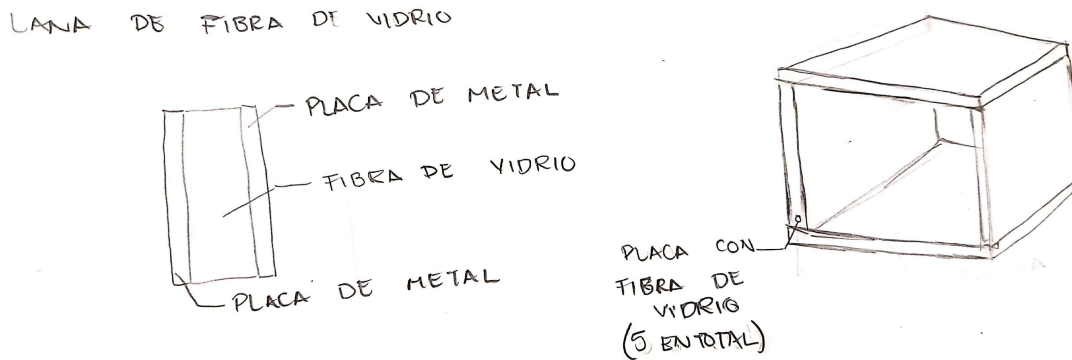 LANA DE FIBRA DE VIDRIO
PLACA DE METAL
FIBRA DE VIDRIO
PLACA DE METAL
PLACA CON
FIBRA DE
VIDRIO
(5 EN TOTAL)